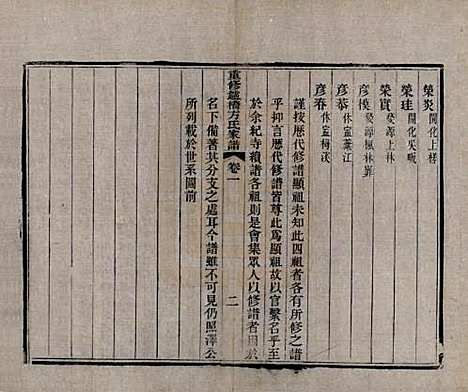 榮炎 開化上樣
榮珪 開化
榮實 婺源上林
彥模 婺源風林
彥恭 休富葉江
彥春 休富梅溪
謹按歷代修譜顯祖未知此四祖者各有所修之譜
乎抑言歷代修譜皆尊此為顯祖故以官繫名乎至
於余紀寺積譜各祖則是會集眾人以修譜者因於
名下備著其分支之處耳今譜雖不可見仍照澤公
所列載於世系圖前
重修爐橋方氏家譜 卷一 二